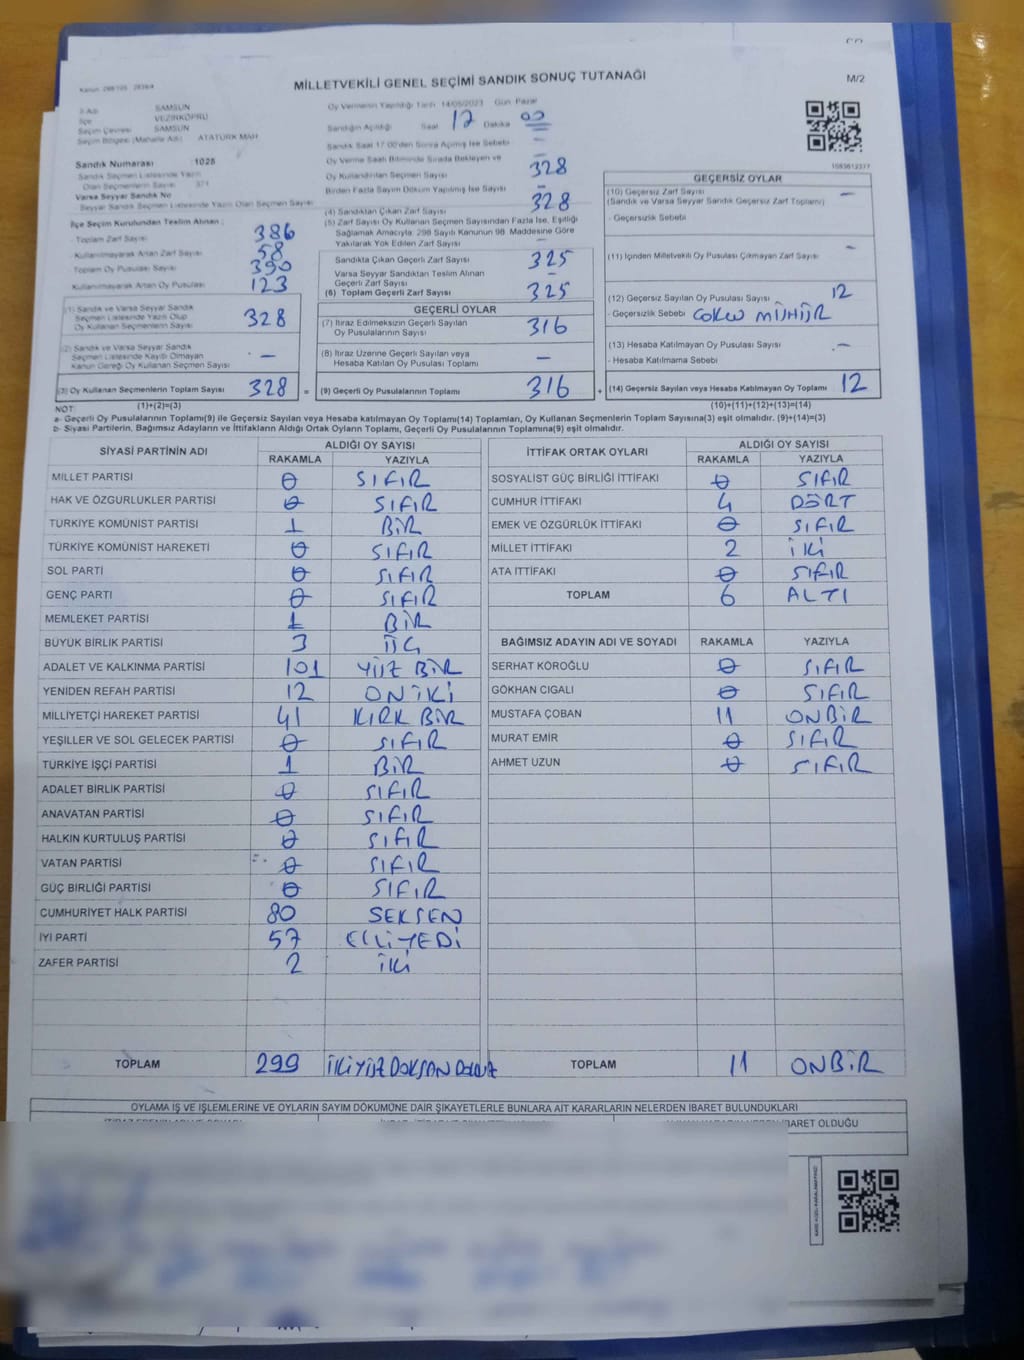 MİLLETVEKİLİ GENEL SEÇİMİ SANDIK SONUÇ TUTANAĞI
M/2
İlçe VEZİRKÖPRÜ
SAMSUN
Seçim Çevresi SAMSUN
Seçim Bölgesi (Mahalle Adı) ATATÜRK MAH
Sandık Numarası :1028
Sandık Seçmen Listesinde Yazılı
Olan Seçmenlerin Sayısı 371
Varsa Seyyar Sandık No
Seyyar Sandık Seçmen Listesinde Yazılı Olan Seçmen Sayısı
İlçe Seçim Kurulundan Teslim Alınan :
- Toplam Zarf Sayısı 386
- Kullanılmayarak Artan Zarf Sayısı 58
Toplam Oy Pusulası Sayısı 390
Kullanılmayarak Artan Oy Pusulası 123
(1) Sandık ve Varsa Seyyar Sandık
Seçmen Listesinde Yazılı Olup
Oy Kullanan Seçmenlerin Sayısı 328
(2) Sandık ve Varsa Seyyar Sandık
Seçmen Listesinde Kayıtlı Olmayan
Kanun Gereği Oy Kullanan Seçmen Sayısı —
(3) Oy Kullanan Seçmenlerin Toplam Sayısı 328 =
(1)+(2)=(3)
Oy Vermenin Yapıldığı Tarih 14/05/2023 Gün Pazar
Sandığın Açıldığı Saat 17 Dakika 00
Sandık Saat 17:00'den Sonra Açılmış İse Sebebi
Oy Verme Saati Bitiminde Sırada Bekleyen ve
Oy Kullandırılan Seçmen Sayısı 328
Birden Fazla Sayım Döküm Yapılmış İse Sayısı —
(4) Sandıktan Çıkan Zarf Sayısı 328
(5) Zarf Sayısı Oy Kullanan Seçmen Sayısından Fazla İse, Eşitliği
Sağlamak Amacıyla; 298 Sayılı Kanunun 98. Maddesine Göre
Yakılarak Yok Edilen Zarf Sayısı —
Sandıkta Çıkan Geçerli Zarf Sayısı 325
Varsa Seyyar Sandıktan Teslim Alınan
Geçerli Zarf Sayısı —
(6) Toplam Geçerli Zarf Sayısı 325
GEÇERLİ OYLAR
(7) İtiraz Edilmeksizin Geçerli Sayılan
Oy Pusulalarının Sayısı 316
(8) İtiraz Üzerine Geçerli Sayılan veya
Hesaba Katılan Oy Pusulası Toplamı —
(9) Geçerli Oy Pusulalarının Toplamı 316 +
GEÇERSİZ OYLAR
(10) Geçersiz Zarf Sayısı —
(Sandık ve Varsa Seyyar Sandık Geçersiz Zarf Toplamı)
- Geçersizlik Sebebi
(11) İçinden Milletvekili Oy Pusulası Çıkmayan Zarf Sayısı —
(12) Geçersiz Sayılan Oy Pusulası Sayısı 12
- Geçersizlik Sebebi ÇOKLU MÜHÜR
(13) Hesaba Katılmayan Oy Pusulası Sayısı —
- Hesaba Katılmama Sebebi
(14) Geçersiz Sayılan veya Hesaba Katılmayan Oy Toplamı 12
(10)+(11)+(12)+(13)=(14)
NOT:
a- Geçerli Oy Pusulalarının Toplamı(9) ile Geçersiz Sayılan veya Hesaba katılmayan Oy Toplamı(14) Toplamları, Oy Kullanan Seçmenlerin Toplam Sayısına(3) eşit olmalıdır. (9)+(14)=(3)
b- Siyasi Partilerin, Bağımsız Adayların ve İttifakların Aldığı Ortak Oyların Toplamı, Geçerli Oy Pusulalarının Toplamına(9) eşit olmalıdır.
SİYASİ PARTİNİN ADI ALDIĞI OY SAYISI
RAKAMLA YAZIYLA
MİLLET PARTİSİ 0 SIFIR
HAK VE ÖZGÜRLÜKLER PARTİSİ 0 SIFIR
TÜRKİYE KOMÜNİST PARTİSİ 1 BİR
TÜRKİYE KOMÜNİST HAREKETİ 0 SIFIR
SOL PARTİ 0 SIFIR
GENÇ PARTİ 0 SIFIR
MEMLEKET PARTİSİ 1 BİR
BÜYÜK BİRLİK PARTİSİ 3 ÜÇ
ADALET VE KALKINMA PARTİSİ 101 YÜZ BİR
YENİDEN REFAH PARTİSİ 12 ON İKİ
MİLLİYETÇİ HAREKET PARTİSİ 41 KIRK BİR
YEŞİLLER VE SOL GELECEK PARTİSİ 0 SIFIR
TÜRKİYE İŞÇİ PARTİSİ 1 BİR
ADALET BİRLİK PARTİSİ 0 SIFIR
ANAVATAN PARTİSİ 0 SIFIR
HALKIN KURTULUŞ PARTİSİ 0 SIFIR
VATAN PARTİSİ 0 SIFIR
GÜÇ BİRLİĞİ PARTİSİ 0 SIFIR
CUMHURİYET HALK PARTİSİ 80 SEKSEN
İYİ PARTİ 57 ELLİYEDİ
ZAFER PARTİSİ 2 İKİ
TOPLAM 299 İKİYÜZ DOKSAN DOKUZ
İTTİFAK ORTAK OYLARI ALDIĞI OY SAYISI
RAKAMLA YAZIYLA
SOSYALİST GÜÇ BİRLİĞİ İTTİFAKI 0 SIFIR
CUMHUR İTTİFAKI 4 DÖRT
EMEK VE ÖZGÜRLÜK İTTİFAKI 0 SIFIR
MİLLET İTTİFAKI 2 İKİ
ATA İTTİFAKI 0 SIFIR
TOPLAM 6 ALTI
BAĞIMSIZ ADAYIN ADI VE SOYADI RAKAMLA YAZIYLA
SERHAT KÖROĞLU 0 SIFIR
GÖKHAN CIGALI 0 SIFIR
MUSTAFA ÇOBAN 11 ONBİR
MURAT EMİR 0 SIFIR
AHMET UZUN 0 SIFIR
TOPLAM 11 ONBİR
OYLAMA İŞ VE İŞLEMLERİNE VE OYLARIN SAYIM DÖKÜMÜNE DAİR ŞİKAYETLERLE BUNLARA AİT KARARLARIN NELERDEN İBARET BULUNDUKLARI
İBARET OLDUĞU